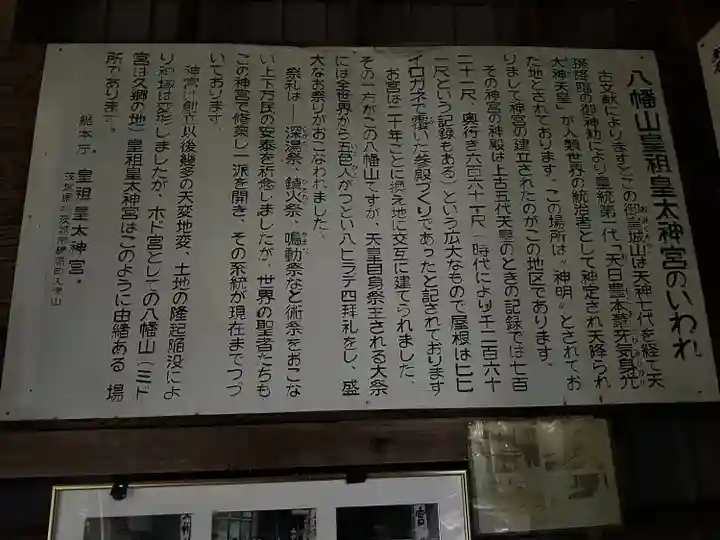 八幡山皇祖皇太神宮のいわれ
古文献によりますとこの御皇城山は天神七代を経て天
孫降臨の御神勅により皇統第一代「天日豊本葦牙気身光
大神天皇」が人類世界の統治者として神定され天降られ
た地とされております。この場所は〝神明〟とされてお
りまして神宮の建立されたのがこの地区であります。
その神宮の神殿は上古五代天皇のときの記録では七百
二十一尺、奥行き六百六十一尺(時代により千二百六十
一尺という記録もある)という広大なもので屋根はヒヒ
イロガネで覆いた参殿づくりであったと記されております
お宮は二十年ごとに換え地に交互に建てられました、
その一方がこの八幡山ですが、天皇自身祭主される大祭
には全世界から五色人がつどい八ヒラデ四拝礼をし、盛
大なお祭りがおこなわれました。
祭礼は―深湯祭、鎮火祭、鳴動祭など術祭をおこな
い上下万民の安泰を祈念しましたが、世界の聖者たちも
この神宮で修業し一派を開き、その系統が現在までつづ
いております。
神宮は創立以後幾多の天変地変、土地の隆起陥没によ
り神域は変形しましたが、ホド宮としての八幡山(ミド
宮は久郷の地)皇祖皇太神宮はこのように由緒ある 場
所であります。
総本庁 皇祖皇太神宮。
茨城県北茨城市磯原町